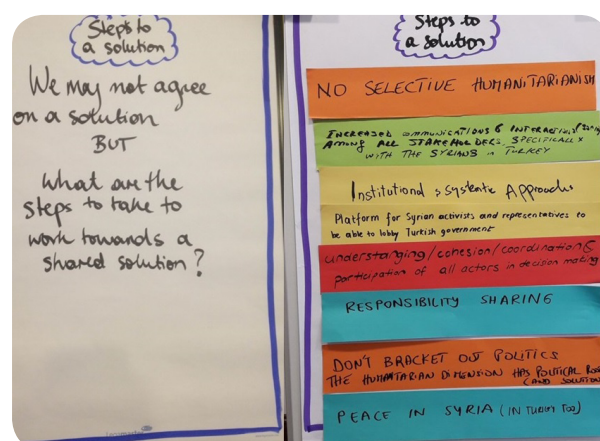 Steps to
a solution
We may not agree
on a solution
BUT
What are the
steps to take to
work towards a
shared solution?
Steps to
a solution
NO SELECTIVE HUMANITARIANISM
INCREASED COMMUNICATIONS & INTERACTIONS
AMONG ALL STAKEHOLDERS, SPECIFICALLY
WITH THE SYRIANS in TURKEY
Institutional & systematic Approaches
Platform for Syrian activists and representatives to
be able to lobby Turkish government
understanding/cohesion/coordination &
participation of all actors in decision making
RESPONSIBILITY SHARING
DON'T BRACKET OUT POLITICS
THE HUMANITARIAN DIMENSION HAS POLITICAL
(AND SOLUTION
PEACE IN SYRIA (IN TURKEY TOO)